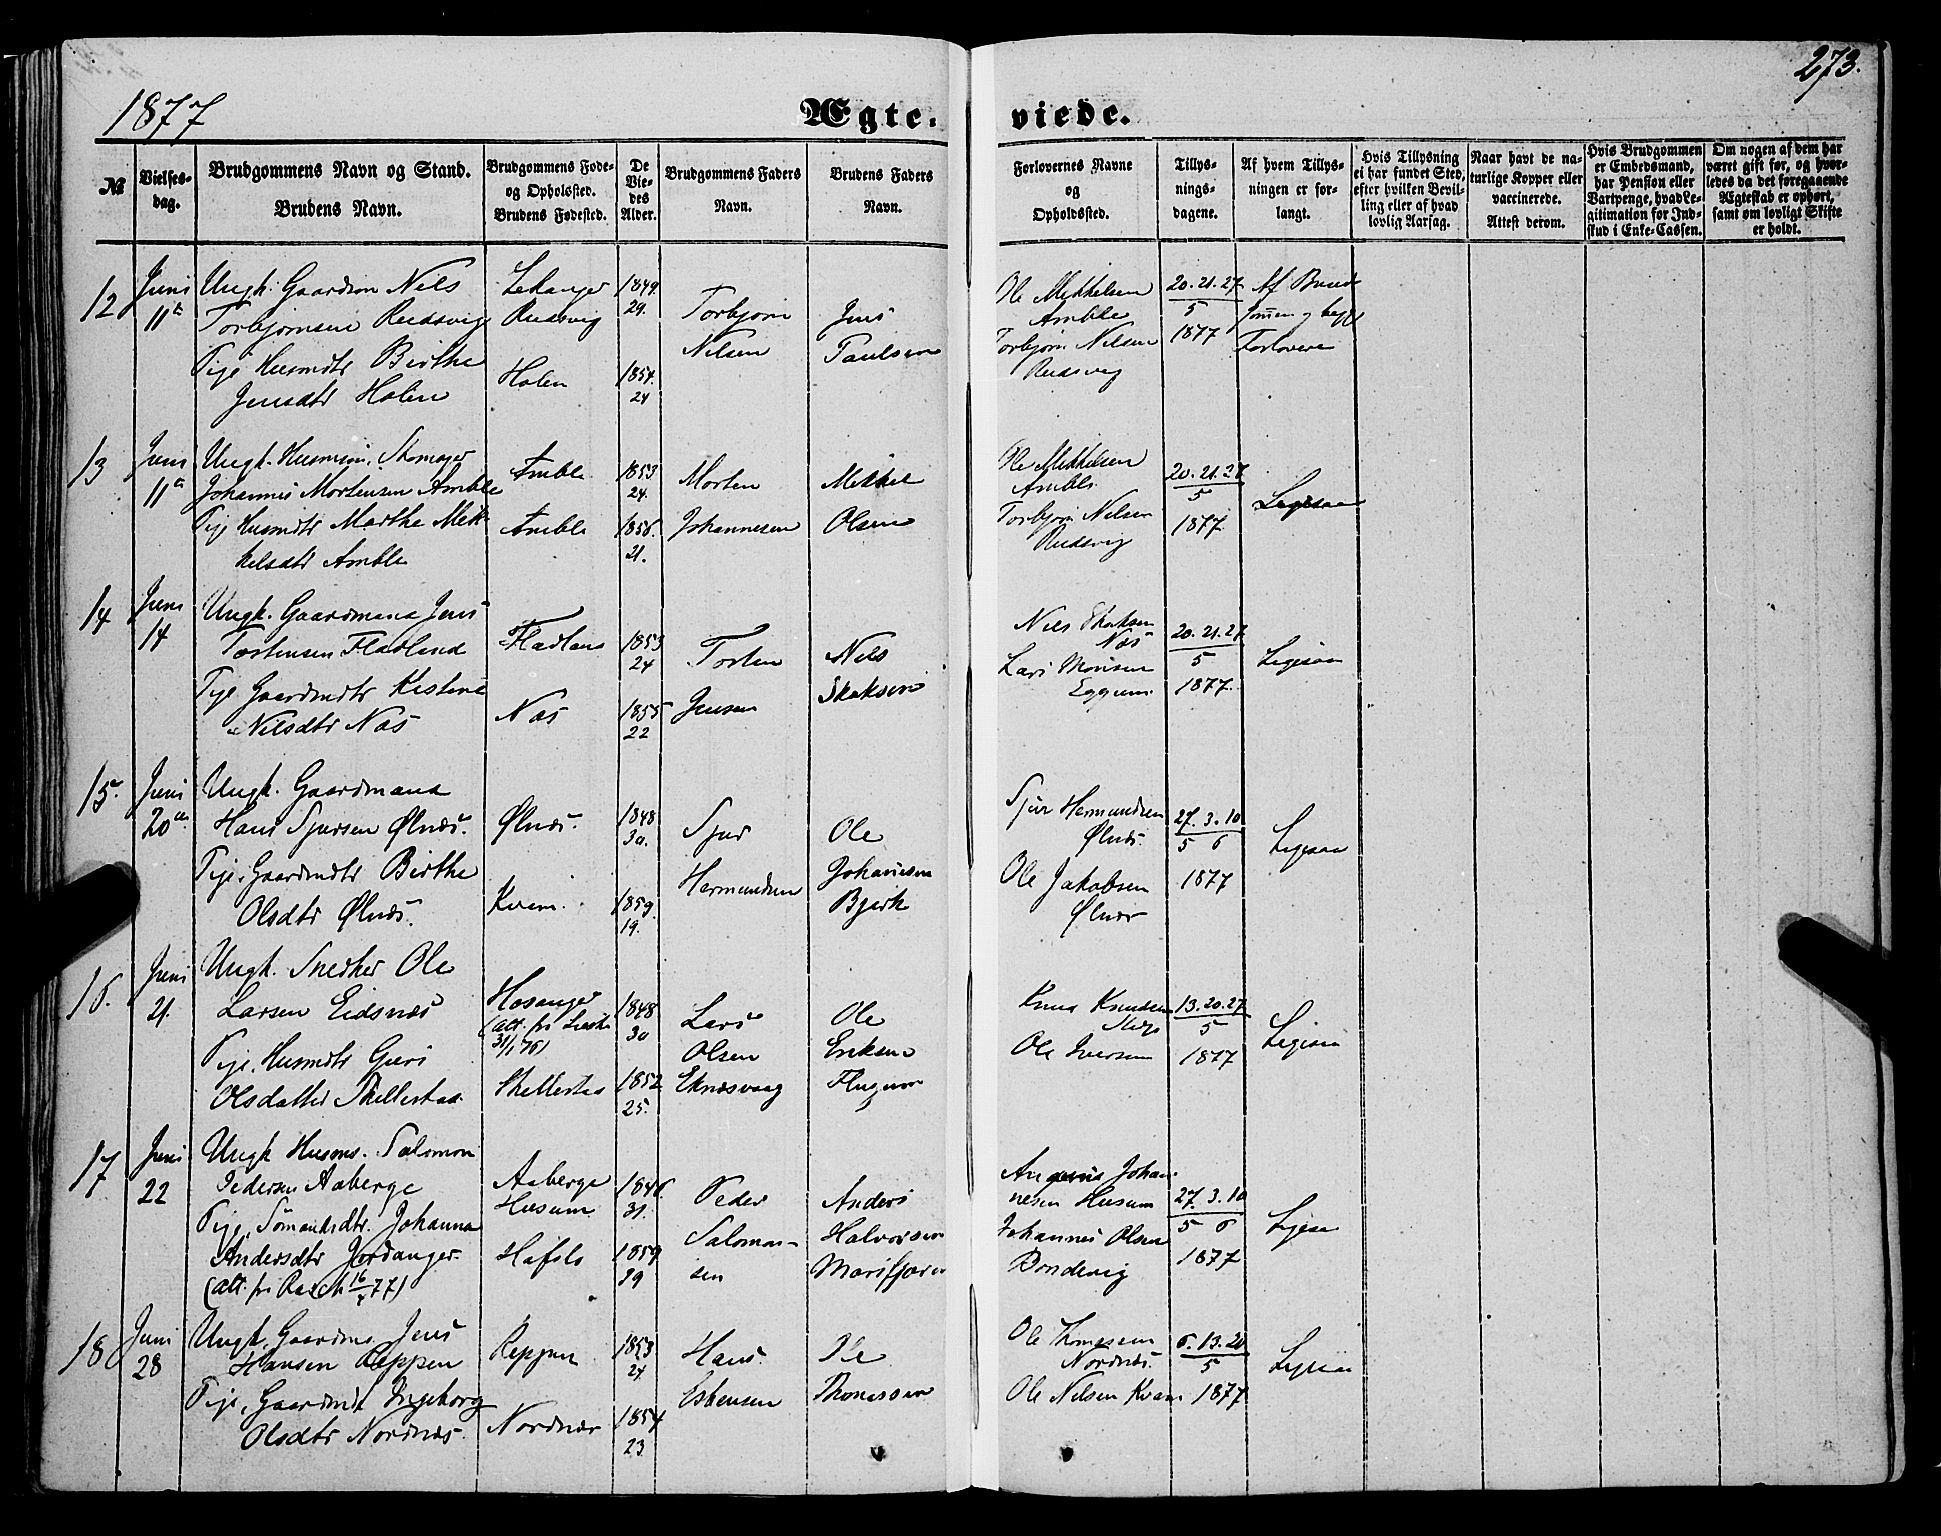 273.
1877
Ægte- viede.
№
Vielses-
dag.
Brudgommens Navn og Stand.
Brudens Navn.
Brudgommens Føde-
og Opholdssted.
Brudens Fødested.
De
Vie-
des
Alder.
Brudgommens Faders
Navn.
Brudens Faders
Navn.
Forlovernes Navne
og
Opholdssted.
Tillys-
nings-
dagene.
Af hvem Tillys-
ningen er for-
langt.
Hvis Tillysning
ei har fundet Sted,
efter hvilken Bevil-
ling eller af hvad
lovlig Aarsag.
Naar havt de na-
turlige Kopper eller
vaccinerede.
Attest derom.
Hvis Brudgommen
er Embedsmand,
har Pension eller
Vartpenge, hvad Le-
gitimation for Ind-
skud i Enke-Cassen.
Om nogen af dem har
været gift før, og hvor-
ledes da det foregaaende
Ægteskab er ophørt,
samt om lovligt Skifte
er holdt.
12
Juni
11te
Ungk. Gaardm Nils
Torbjørnsen Rudsvig
Pige Husmdtr Birthe
Jensdtr Holen
Lekanger
Rudsvig
Holen
1849.
29.
1854.
24
Torbjørn
Nilsen
Jens
Paulsen
Ole Mikkelsen
Amble
Torbjørn Nilsen
Rudsvig
20. 21. 27
5
1877
Af Brud-
gommen og begge
Forlovere
13
Juni
11te
Ungk. Husmsøn, Skomager
Johannes Mortensen Amble
Pige Husmdtr Marthe Mik-
kelsdtr Amble
Amble
Amble
1853
24.
1856.
21.
Morten
Johannesen
Mikkel
Olsen
Ole Mikkelsen
Amble
Torbjørn Nilsen
Rudsvig
20. 21. 27
5
1877.
Ligesaa
14
Juni
14
Ungk. Gaardmand Jens
Torstensen Fladland
Pige Gaardmdtr Kistine
Nilsdtr Næs
Fladland
Næs
1853
24
1855
22
Torsten
Jensen
Nils
Skaksen
Nils Skaksen
Næs
Lars Monsen
Eggum
20. 21. 27
5
1877.
Ligesaa
15.
Juni
20de
Ungk. Gaardmand
Hans Sjursen Ølnæs.
Pige, Gaardmdtr Birthe
Olsdtr Ølnæs.
Ølnæs.
Kvam.
1848
30.
1859.
19.
Sjur
Hermundsen
Ole
Johannesen
Bjørk
Sjur Hermundsen
Ølnæs.
Ole Jakobsen
Ølnæs
27. 3. 10
5 6
1877
Ligesaa
16.
Juni
21.
Ungk. Snedker Ole
Larsen Eidsnæs
Pige, Husmdtr Guri
Olsdatter Skellestad
Hosanger
31/1 76)
Skellestad
1848
30
1852
25.
Lars
Olsen
Eknæsvaag
Ole
Eriksen
Knud Knudsen
Ole Iversen
13. 20. 27
5
1877
Ligesaa
17
Juni
22
Ungk Husms. Salomon
Pedersen Aaberge
Pige, Sømandsdtr. Johanna
Andersdtr Jordanger
(Att. fr. Rasch 16/4 77)
Aaberge
Husum
Hafslo
1846
31.
1859
29
Peder
Salomon-
sen
Anders
Halvorsen
Marifjøren
Johan-
nesen Husum
Johannes Olsen
Bondevig
27. 3. 10
5 6
1877
Ligesaa
18
Juni
28
Ungk. Gaardms Jens
Hansen Reppen
Pige, Gaardmdt Ingeborg
Olsdtr Nordnæs.
Reppen
Nordnæs
1853
24.
1854
23.
Hans
Esbensen
Ole
Thomassen
Ole Thomassen
Nordnæs.
Ole Nilsen Kvam
6. 13. 20
5
1877
Ligesaa